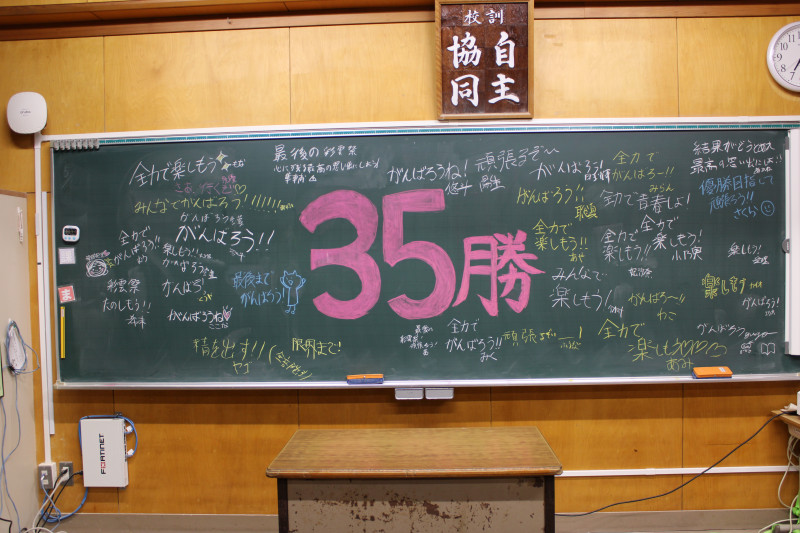 校訓
自主
協同
全力で楽しもう
みんなでがんばろう!!!!!!
がんばろう!!
全力で
がんばろう!!
楽しもう!!
がんばろう
彩雲祭
たのしもう!!
がんばろうね
最後まで
がんばろう!
精を出す!!
限界まで!
最後の彩雲祭
がんばろうね!
頑張るぞ〜
がんばろー!
全力で
がんばろー!!
がんばろう!!
35勝
全力で
楽しもう!!
あや
みんなで
楽しもう!
全力で青春しよ!
全力で
楽しもう!!
全力で
楽しもう!
がんばろ〜!!
全力で
がんばろう!!
みく
全力で
楽しもう
あみ
結果がどうであれ
最高の思い出に!!
優勝目指して
頑張ろう!
さくら
楽しもう!
楽します
がんばろう!
がんばろう
FORTINET